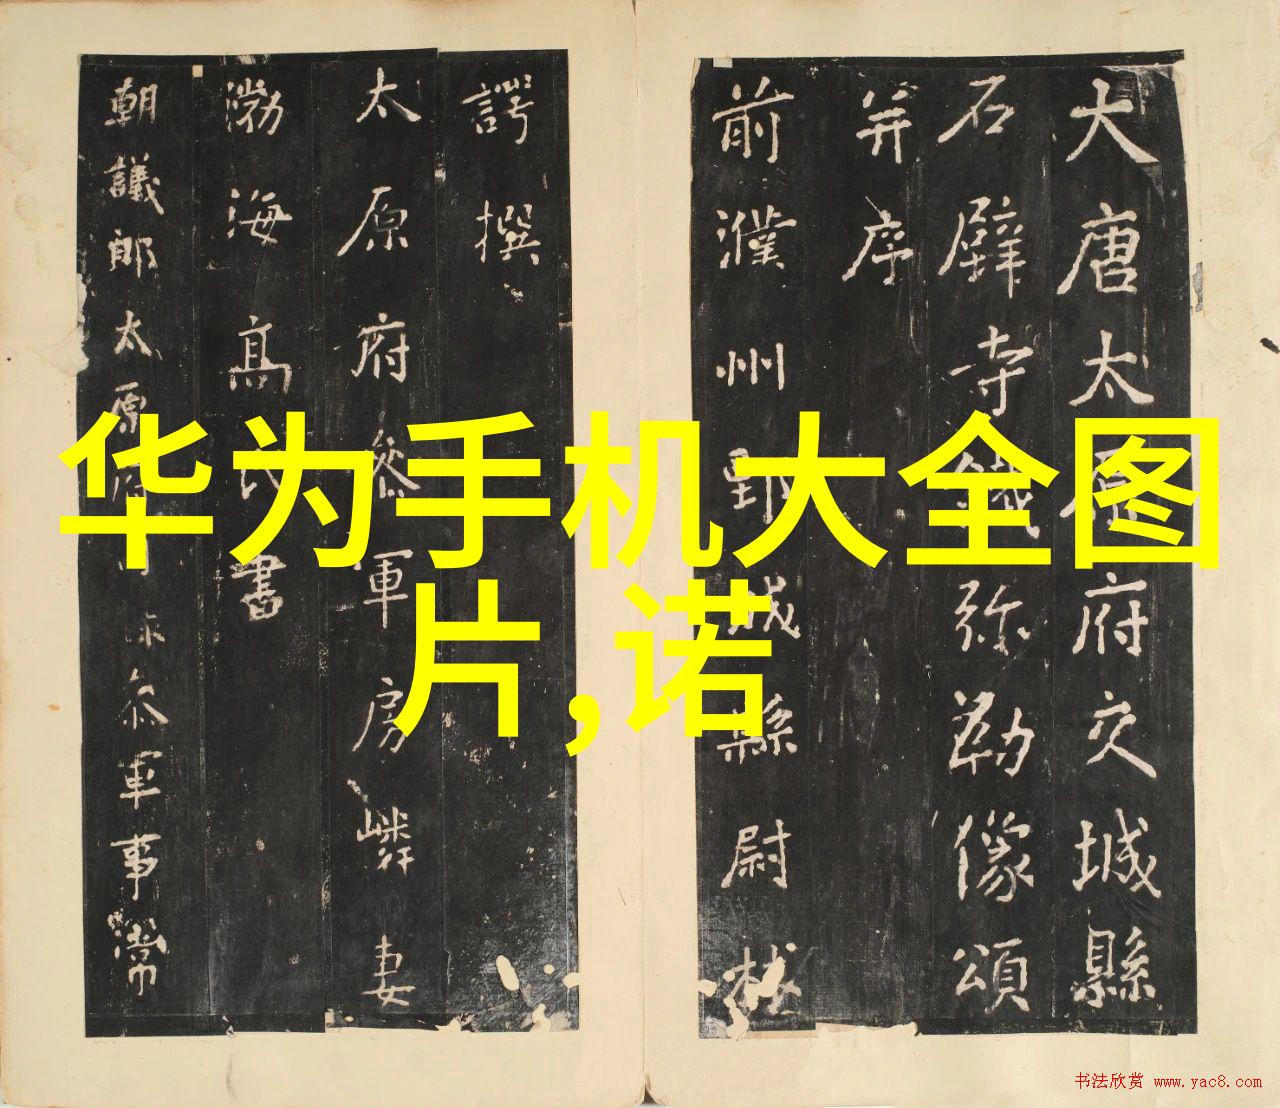 华为手机大全图
片,诺
大唐太原府交城縣
石壁寺鐵弥勒像頌
并序
前濮州鄄城縣尉林
諤撰
太原府叅軍房嶙妻
渤海髙氏書
朝議郎太原府叅軍事常
书法欣赏 www.yac8.com